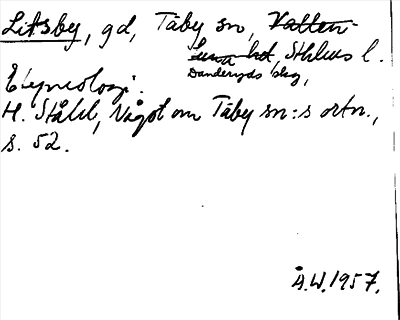 Litsby, gd, Täby sn, Vallen-
tuna hd, Sthlms l.
Danderyds skg,
Etymologi.
H. Ståhl, Något om Täby sn:s ortn.,
s. 52.
Å.W.1957.